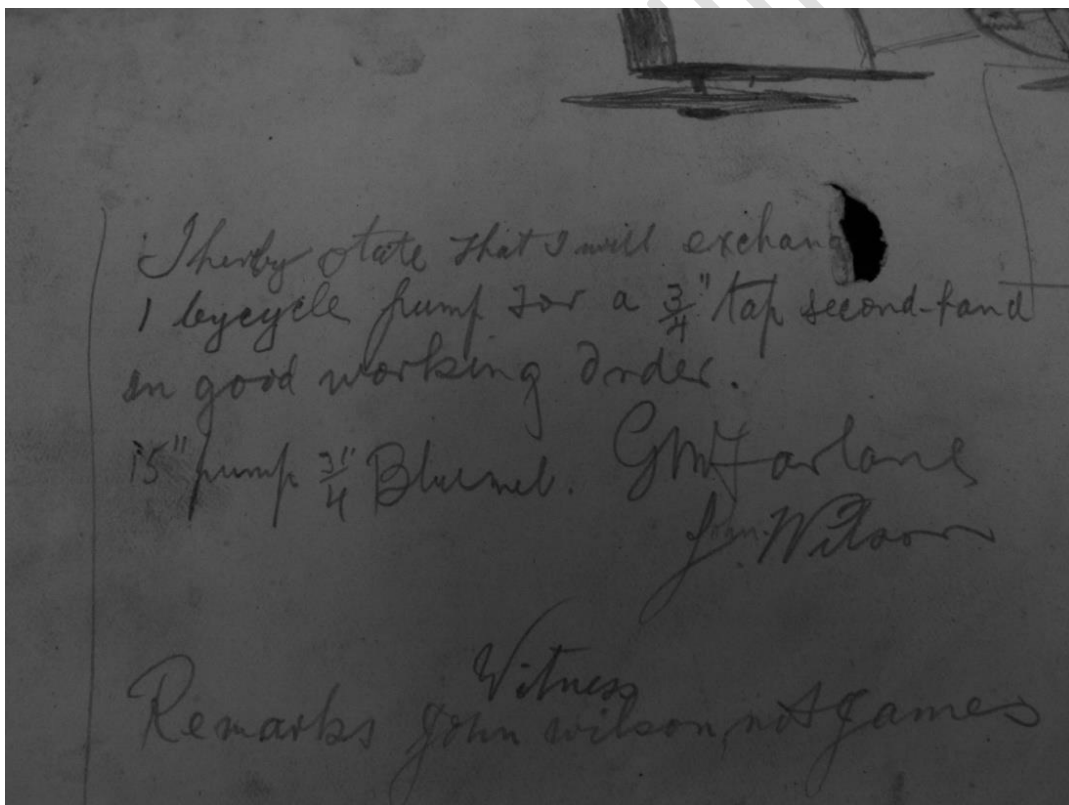 I herby state that I will exchang
1 bycycle pump for a 3/4" tap second-hand
in good working order.
15" pump 3/4" Bluemel. G McFarlane
J. Wilson
Witness
Remarks John wilson, not James